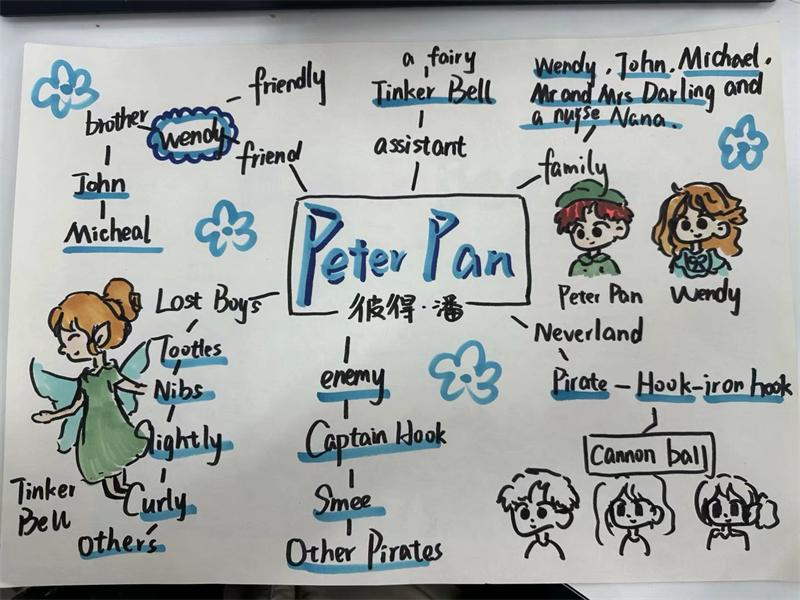 a fairy
Tinker Bell
assistant
Wendy, John, Michael,
Mr and Mrs Darling and
a nurse Nana.
family
friendly
brother
Wendy
friend
John
Micheal
Peter Pan
彼得·潘
Peter Pan
Wendy
Lost Boys
Tootles
Nibs
Slightly
Curly
Others
Tinker
Bell
enemy
Captain Hook
Smee
Other Pirates
Neverland
Pirate - Hook - iron hook
Cannon ball